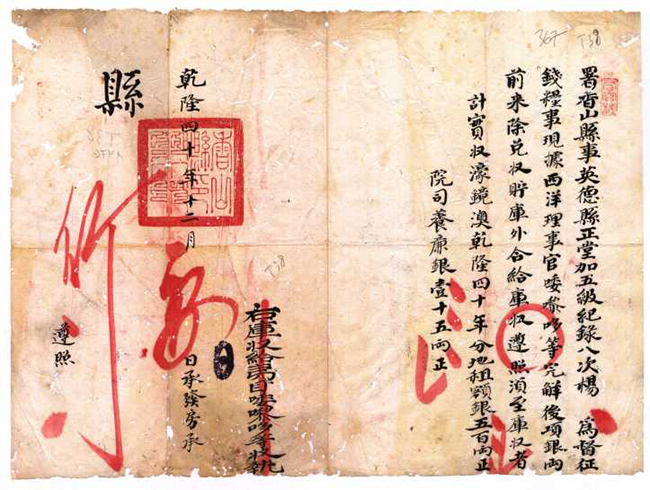 367 T38
署香山縣事英德縣正堂加五級紀錄八次楊 為督征
錢糧事現據西洋理事官唩嚟哆等完解後項銀兩
前來除兌收貯庫外合給庫收遵照須至庫收者
計實收濠鏡澳乾隆四十年分地租額銀五百兩正
院司養廉銀壹十五兩正
右庫收給夷目唩嚟哆等收執
T38
乾隆四十年十二月 日承發房承
縣
行
遵照